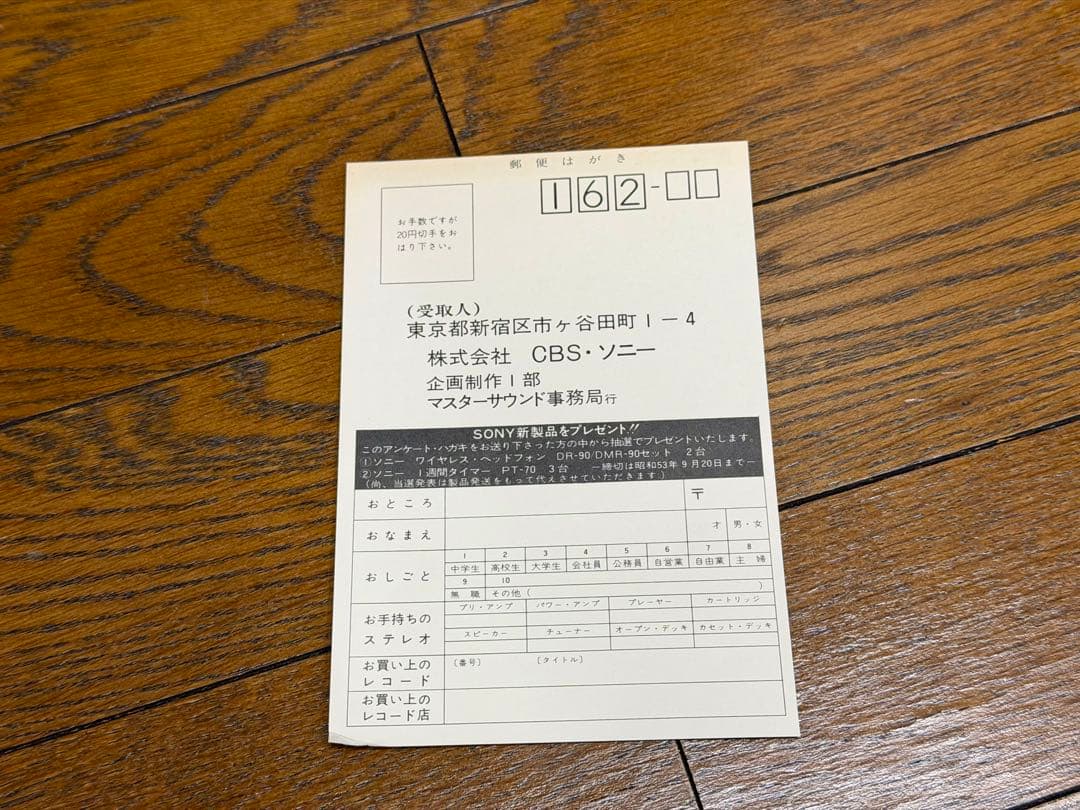 郵便はがき
162-
お手数ですが
20円切手をお
はり下さい。
(受取人)
東京都新宿区市ヶ谷田町1-4
株式会社 CBS・ソニー
企画制作1部
マスターサウンド事務局行
SONY新製品をプレゼント!!
このアンケート・ハガキをお送り下さった方の中から抽選でプレゼントいたします。
①ソニー ワイヤレス・ヘッドフォン DR-90/DMR-90セット 2台
②ソニー 1週間タイマー PT-70 3台 —締切は昭和53年9月20日まで—
(尚、当選発表は製品発送をもって代えさせていただきます。)
おところ 〒
おなまえ 才 男・女
おしごと
1 2 3 4 5 6 7 8
中学生 高校生 大学生 会社員 公務員 自営業 自由業 主婦
9 10
無職 その他( )
お手持ちのステレオ
プリ・アンプ パワー・アンプ プレーヤー カートリッジ
スピーカー チューナー オープン・デッキ カセット・デッキ
お買い上の
レコード
〔番号〕 〔タイトル〕
お買い上の
レコード店